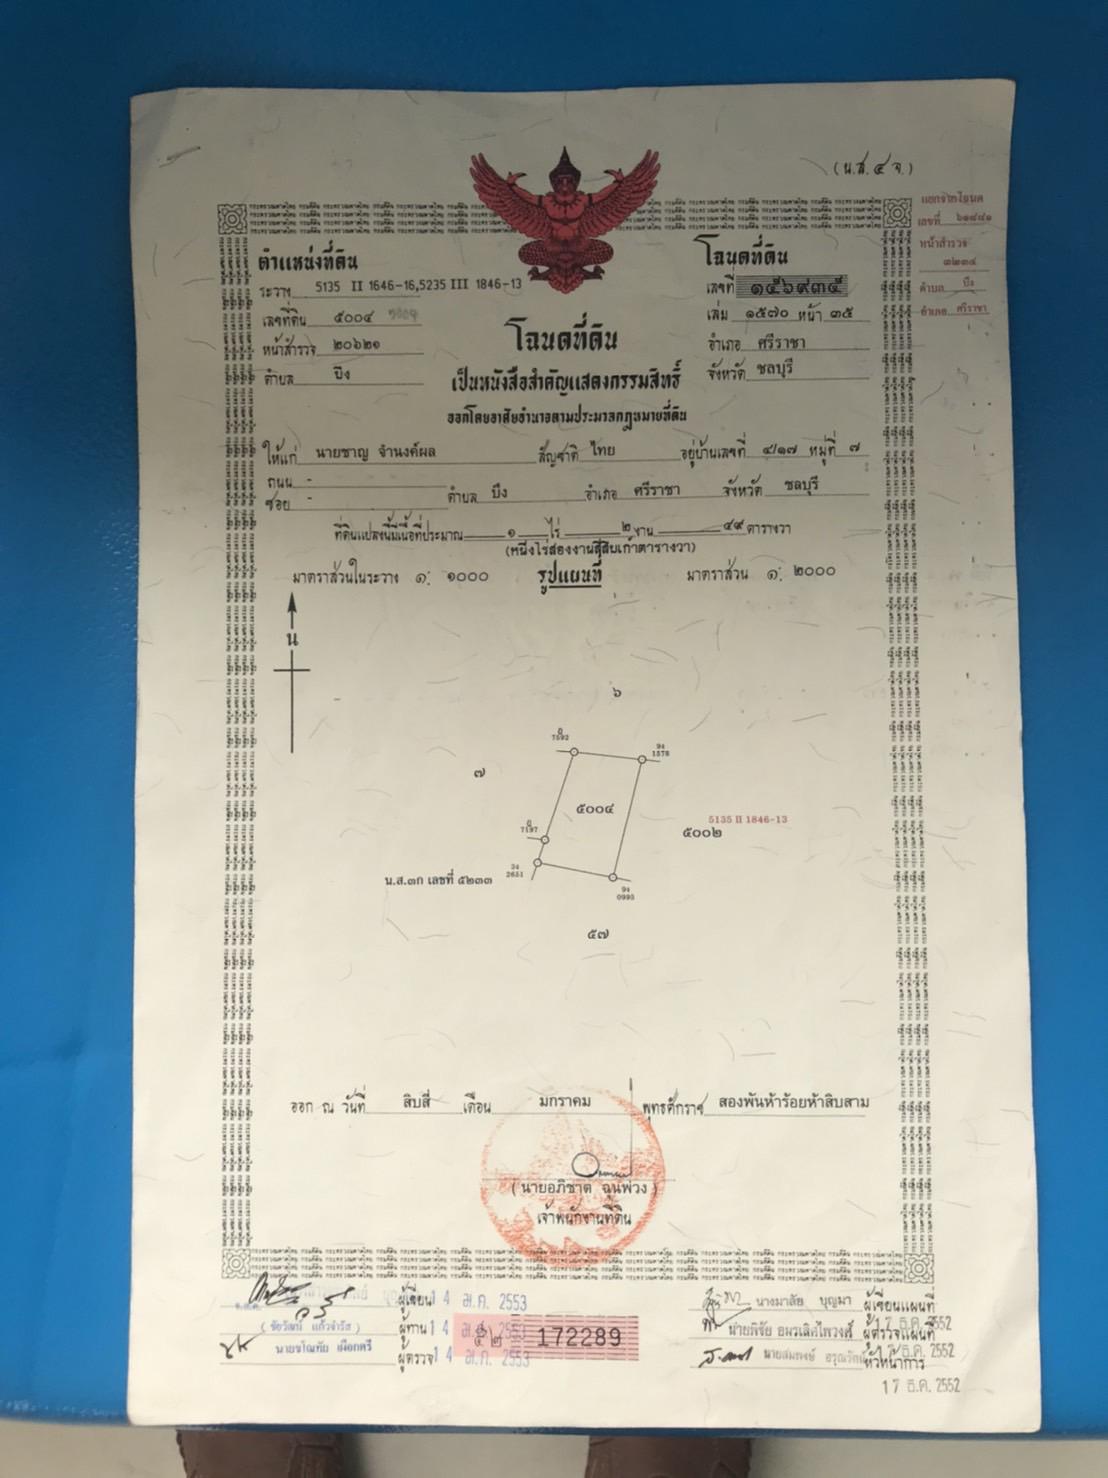 (น.ส.๔ จ.)
แยกจากโฉนด
เลขที่ ๖๑๔๔๑
หน้าสำรวจ
๓๒๓๔
ตำบล บึง
อำเภอ ศรีราชา
ตำแหน่งที่ดิน
ระวาง 5135 II 1646-16,5235 III 1846-13
เลขที่ดิน ๕๐๐๔
หน้าสำรวจ ๒๐๖๒๑
ตำบล บึง
โฉนดที่ดิน
เลขที่ ๑๕๖๙๓๕
เล่ม ๑๕๗๐ หน้า ๓๕
อำเภอ ศรีราชา
จังหวัด ชลบุรี
โฉนดที่ดิน
เป็นหนังสือสำคัญแสดงกรรมสิทธิ์
ออกโดยอาศัยอำนาจตามประมวลกฎหมายที่ดิน
ให้แก่ นายชาญ จำนงค์ผล สัญชาติ ไทย อยู่บ้านเลขที่ ๔/๑๗ หมู่ที่ ๗
ถนน -
ซอย - ตำบล บึง อำเภอ ศรีราชา จังหวัด ชลบุรี
ที่ดินแปลงนี้มีเนื้อที่ประมาณ ๑ ไร่ ๒ งาน ๔๙ ตารางวา
(หนึ่งไร่สองงานสี่สิบเก้าตารางวา)
มาตราส่วนในระวาง ๑: ๑๐๐๐ รูปแผนที่ มาตราส่วน ๑: ๒๐๐๐
น
๖
7592
94
1578
๗
๕๐๐๔
5135 II 1846-13
๕๐๐๒
7197
34
2651
น.ส.๓ก เลขที่ ๕๒๓๓
94
0993
๕๗
ออก ณ วันที่ สิบสี่ เดือน มกราคม พุทธศักราช สองพันห้าร้อยห้าสิบสาม
(นายอภิชาต ฉุนพ่วง)
เจ้าพนักงานที่ดิน
ผู้เขียน 14 ม.ค. 2553
(ชัยวัฒน์ แก้วจำรัส) ผู้ทาน 14 ม.ค. 2553
ผู้ตรวจ 14 ม.ค. 2553
๕๒ 172289
นางมาลัย บุญมา ผู้เขียนแผนที่
17 ธ.ค. 2552
นายพิชัย อมรเลิศไพวงศ์ ผู้ตรวจแผนที่
17 ธ.ค. 2552
หัวหน้าการ
17 ธ.ค. 2552